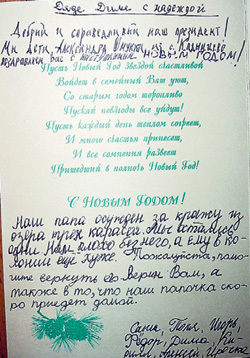 Дяде Диме с надеждой
Добрый и справедливый наш президент!
Мы дети, Александра с. Калачиево
поздравляем вас с наступающим НОВЫМ ГОДОМ!
Пусть Новый Год звездой счастливой
Войдет в семейный Ваш уют,
Со старым годом торопливо
Пускай невзгоды все уйдут!
Пусть каждый день теплом согреет,
И много счастья принесет,
И все сомненья развеет
Пришедший в полночь Новый Год!
С НОВЫМ ГОДОМ!
Наш папа осужден за кражу из
озера трех карасей. Мы остались
одни. Нам плохо без него, а ему в ко-
лонии еще хуже. Пожалуйста, помо-
гите вернуть его. Верим Вам, а
также в то, что наш папочка ско-
ро придет домой.
Саша, Поля, Игорь,
Федор, Дима, Ки-
рилл, Алексей, Иречка